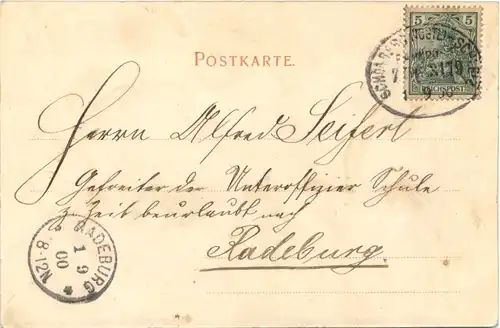 POSTKARTE.
5 5
REICHSPOST
Herrn Alfred Seifert
Gefreiter der Unteroffizier Schule
z. Zeit beurlaubt nach
Radeburg.
* RADEBURG *
1 9
00
8-12N